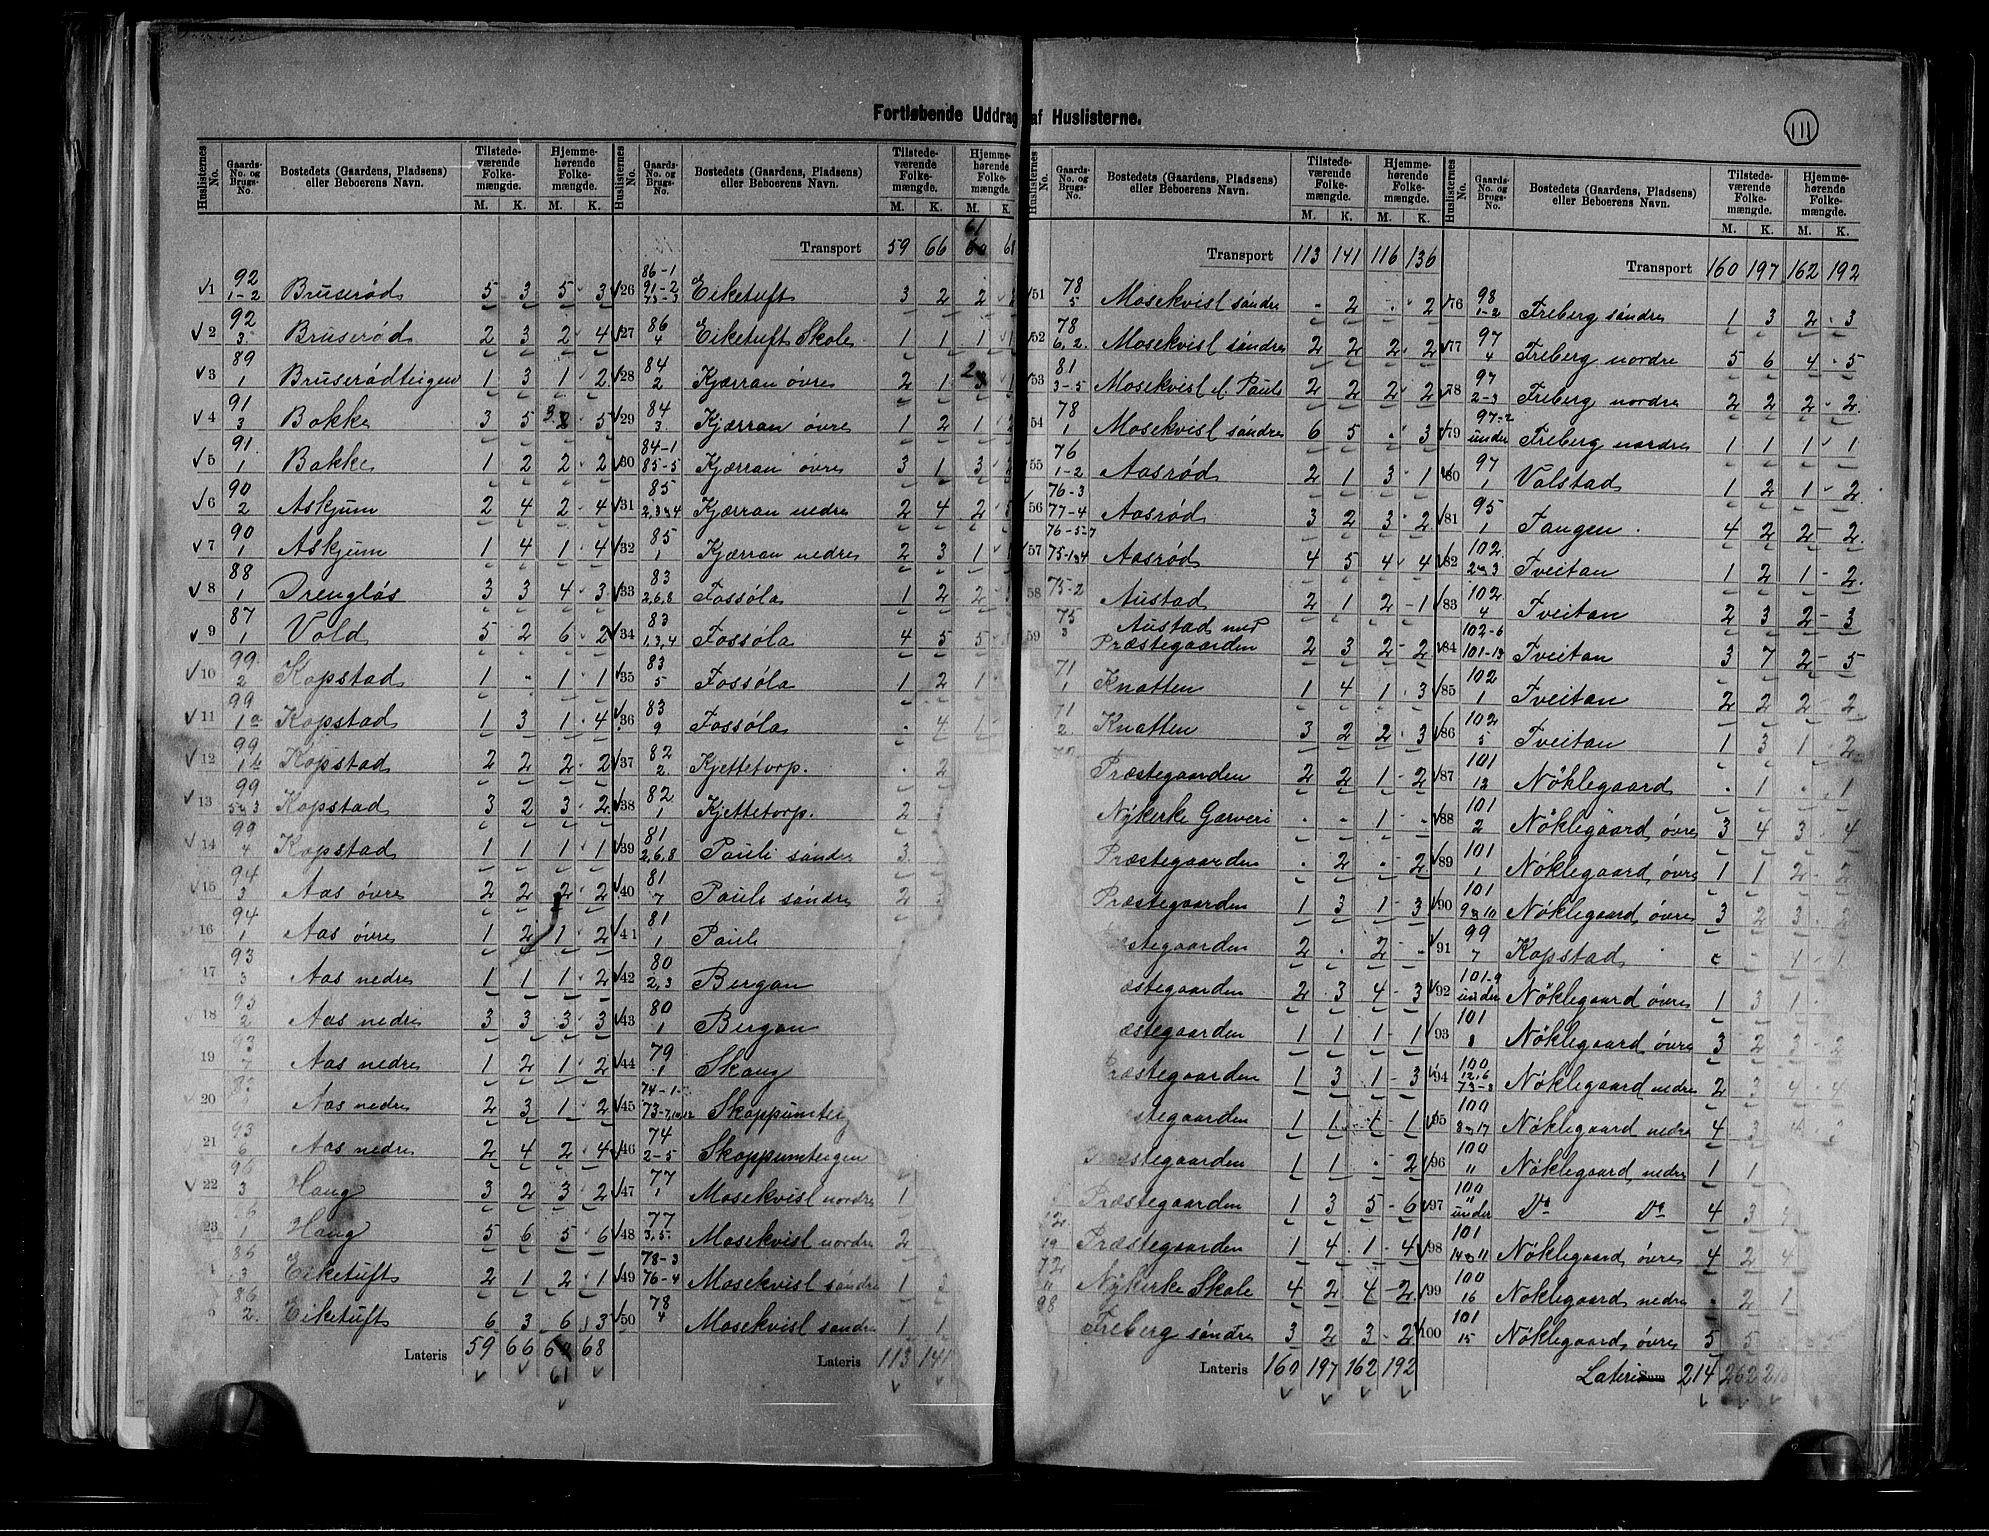 Fortløbende Uddrag af Huslisterne.
111
Huslisternes No. Gaards-No. og Brugs-No. Bostedets (Gaardens, Pladsens) eller Beboerens Navn. Tilstedeværende Folkemængde. M. K. Hjemmehørende Folkemængde. M. K.
1 92 1-2 Bruserød 5 3 5 3
2 92 3 Bruserød 2 3 2 4
3 89 1 Bruserødteigen 1 3 1 2
4 91 3 Bakke 3 5 3 5
5 91 1 Bakke 1 2 2 2
6 90 2 Askjum 2 4 2 4
7 90 1 Askjum 1 4 1 4
8 88 1 Drengløs 3 3 4 3
9 87 1 Vold 5 2 6 2
10 99 2 Kopstad 1 - 1 1
11 99 1a Kopstad 1 3 1 4
12 99 1b Kopstad 2 2 2 2
13 99 5 og 3 Kopstad 3 2 3 2
14 99 4 Kopstad 1 1 1 1
15 94 3 Aas övre 2 2 2 2
16 94 1 Aas övre 1 2 1 2
17 93 3 Aas nedre 1 1 1 2
18 93 2 Aas nedre 3 3 3 3
19 93 7 Aas nedre 1 2 1 2
20 Aas nedre 2 3 1 2
21 93 6 Aas nedre 2 4 2 4
22 96 3 Haug 3 2 3 2
23 1 Haug 5 6 5 6
3 Eiketuft 2 1 2 1
86 2 Eiketuft 6 3 6 3
Lateris 59 66 61 68
Huslisternes No. Gaards-No. og Brugs-No. Bostedets (Gaardens, Pladsens) eller Beboerens Navn. Tilstedeværende Folkemængde. M. K. Hjemmehørende Folkemængde. M. K.
Transport 59 66 61
26 86-1 91-2 73-3 Eiketuft 3 2 2
27 86 4 Eiketuft Skole 1 1 1
28 84 2 Kjærran övre 2 1 2
29 84 3 Kjærran övre 1 2 1
30 84-1 85-5 Kjærran övre 3 1 3
31 85 2,3 og 4 Kjærran nedre 2 4 2
32 85 1 Kjærran nedre 2 3 1
33 83 2,6,8 Fossöla 1 2 2
34 83 1,3,4 Fossöla 4 5 5
35 83 5 Fossöla 1 2 1
36 83 9 Fossöla . 4 1
37 82 2 Kjettetorp. . 2
38 82 1 Kjettetorp. 2
39 81 2,6,8 Pauli söndre 3
40 81 7 Pauli söndre 2
41 81 1 Pauli
42 80 2,3 Bergan
43 80 1 Bergan
44 79 1 Skaug
45 74-1 73-7,10,12 Skoppumteig
46 74 2-5 Skoppumteigen
47 77 1 Mosekvisl nordre 1
48 77 3,5 Mosekvisl nordre 2
49 78-3 76-4 Mosekvisl söndre 1 3
50 78 4 Mosekvisl söndre 1 1
Lateris 113 141
Huslisternes No. Gaards-No. og Brugs-No. Bostedets (Gaardens, Pladsens) eller Beboerens Navn. Tilstedeværende Folkemængde. M. K. Hjemmehørende Folkemængde. M. K.
Transport 113 141 116 136
51 78 5 Mosekvisl söndre . 2 . 2
52 78 6,2 Mosekvisl söndre 2 2 2 2
53 81 3-5 Mosekvisl & Pauli 2 2 2 2
54 78 1 Mosekvisl söndre 6 5 . 3
55 76 1-2 Aasrød 2 1 3 1
56 76-3 77-4 Aasrød 3 2 3 2
57 76-5-7 75-1 og 4 Aasrød 4 5 4 4
58 75-2 Austad 2 1 2 1
59 75 3 Austad med Præstegaarden 2 3 2 2
71 1 Knatten 1 4 1 3
71 2 Knatten 3 2 2 3
Præstegaarden 2 2 1 2
Nykirke Garveri . - 1 -
Præstegaarden . 2 . 2
Præstegaarden 1 3 1 3
æstegaarden 2 . 2 -
æstegaarden 2 3 4 3
æstegaarden 1 1 1 1
Præstegaarden 1 3 1 3
stegaarden 1 1 1 1
Præstegaarden 1 1 . 2
Præstegaarden 1 3 5 6
Præstegaarden 1 4 1 4
Nykirke Skole 4 2 4 2
98 Freberg söndre 3 2 3 2
Lateris 160 197 162 192
Huslisternes No. Gaards-No. og Brugs-No. Bostedets (Gaardens, Pladsens) eller Beboerens Navn. Tilstedeværende Folkemængde. M. K. Hjemmehørende Folkemængde. M. K.
Transport 160 197 162 192
76 98 1-2 Freberg söndre 1 3 2 3
77 97 4 Freberg nordre 5 6 4 5
78 97 2-3 Freberg nordre 2 2 2 2
79 97-2 under Freberg nordre 1 1 1 1
80 97 1 Valstad 1 2 1 2
81 95 1 Tangen 4 2 2 2
82 102 2 og 3 Tveitan 1 2 1 2
83 102 4 Tveitan 2 3 2 3
84 102-6 101-13 Tveitan 3 7 2 5
85 102 1 Tveitan 2 2 2 2
86 102 5 Tveitan 1 3 1 2
87 101 12 Nöklegaard . 1 . 1
88 101 2 Nöklegaard övre 3 4 3 4
89 101 1 Nöklegaard övre 1 1 2 2
90 101 9 og 10 Nöklegaard övre 3 2 3 2
91 99 7 Kopstad - 1 1
92 101-9 under Nöklegaard övre 1 3 1
93 101 8 Nöklegaard övre 3 2 3 2
94 100 12,6 73-8 Nöklegaard nedre 2 3 4 4
95 100 8 og 17 Nöklegaard nedre 4 3 4 3
96 100 " Nöklegaard nedre 1 1
97 100 " under Do Do 4 3
98 101 14 og 11 Nöklegaard övre 4 2 4
99 100 16 Nöklegaard nedre . 2 1
100 101 15 Nöklegaard övre 5 5
Lateris Sum 214 262